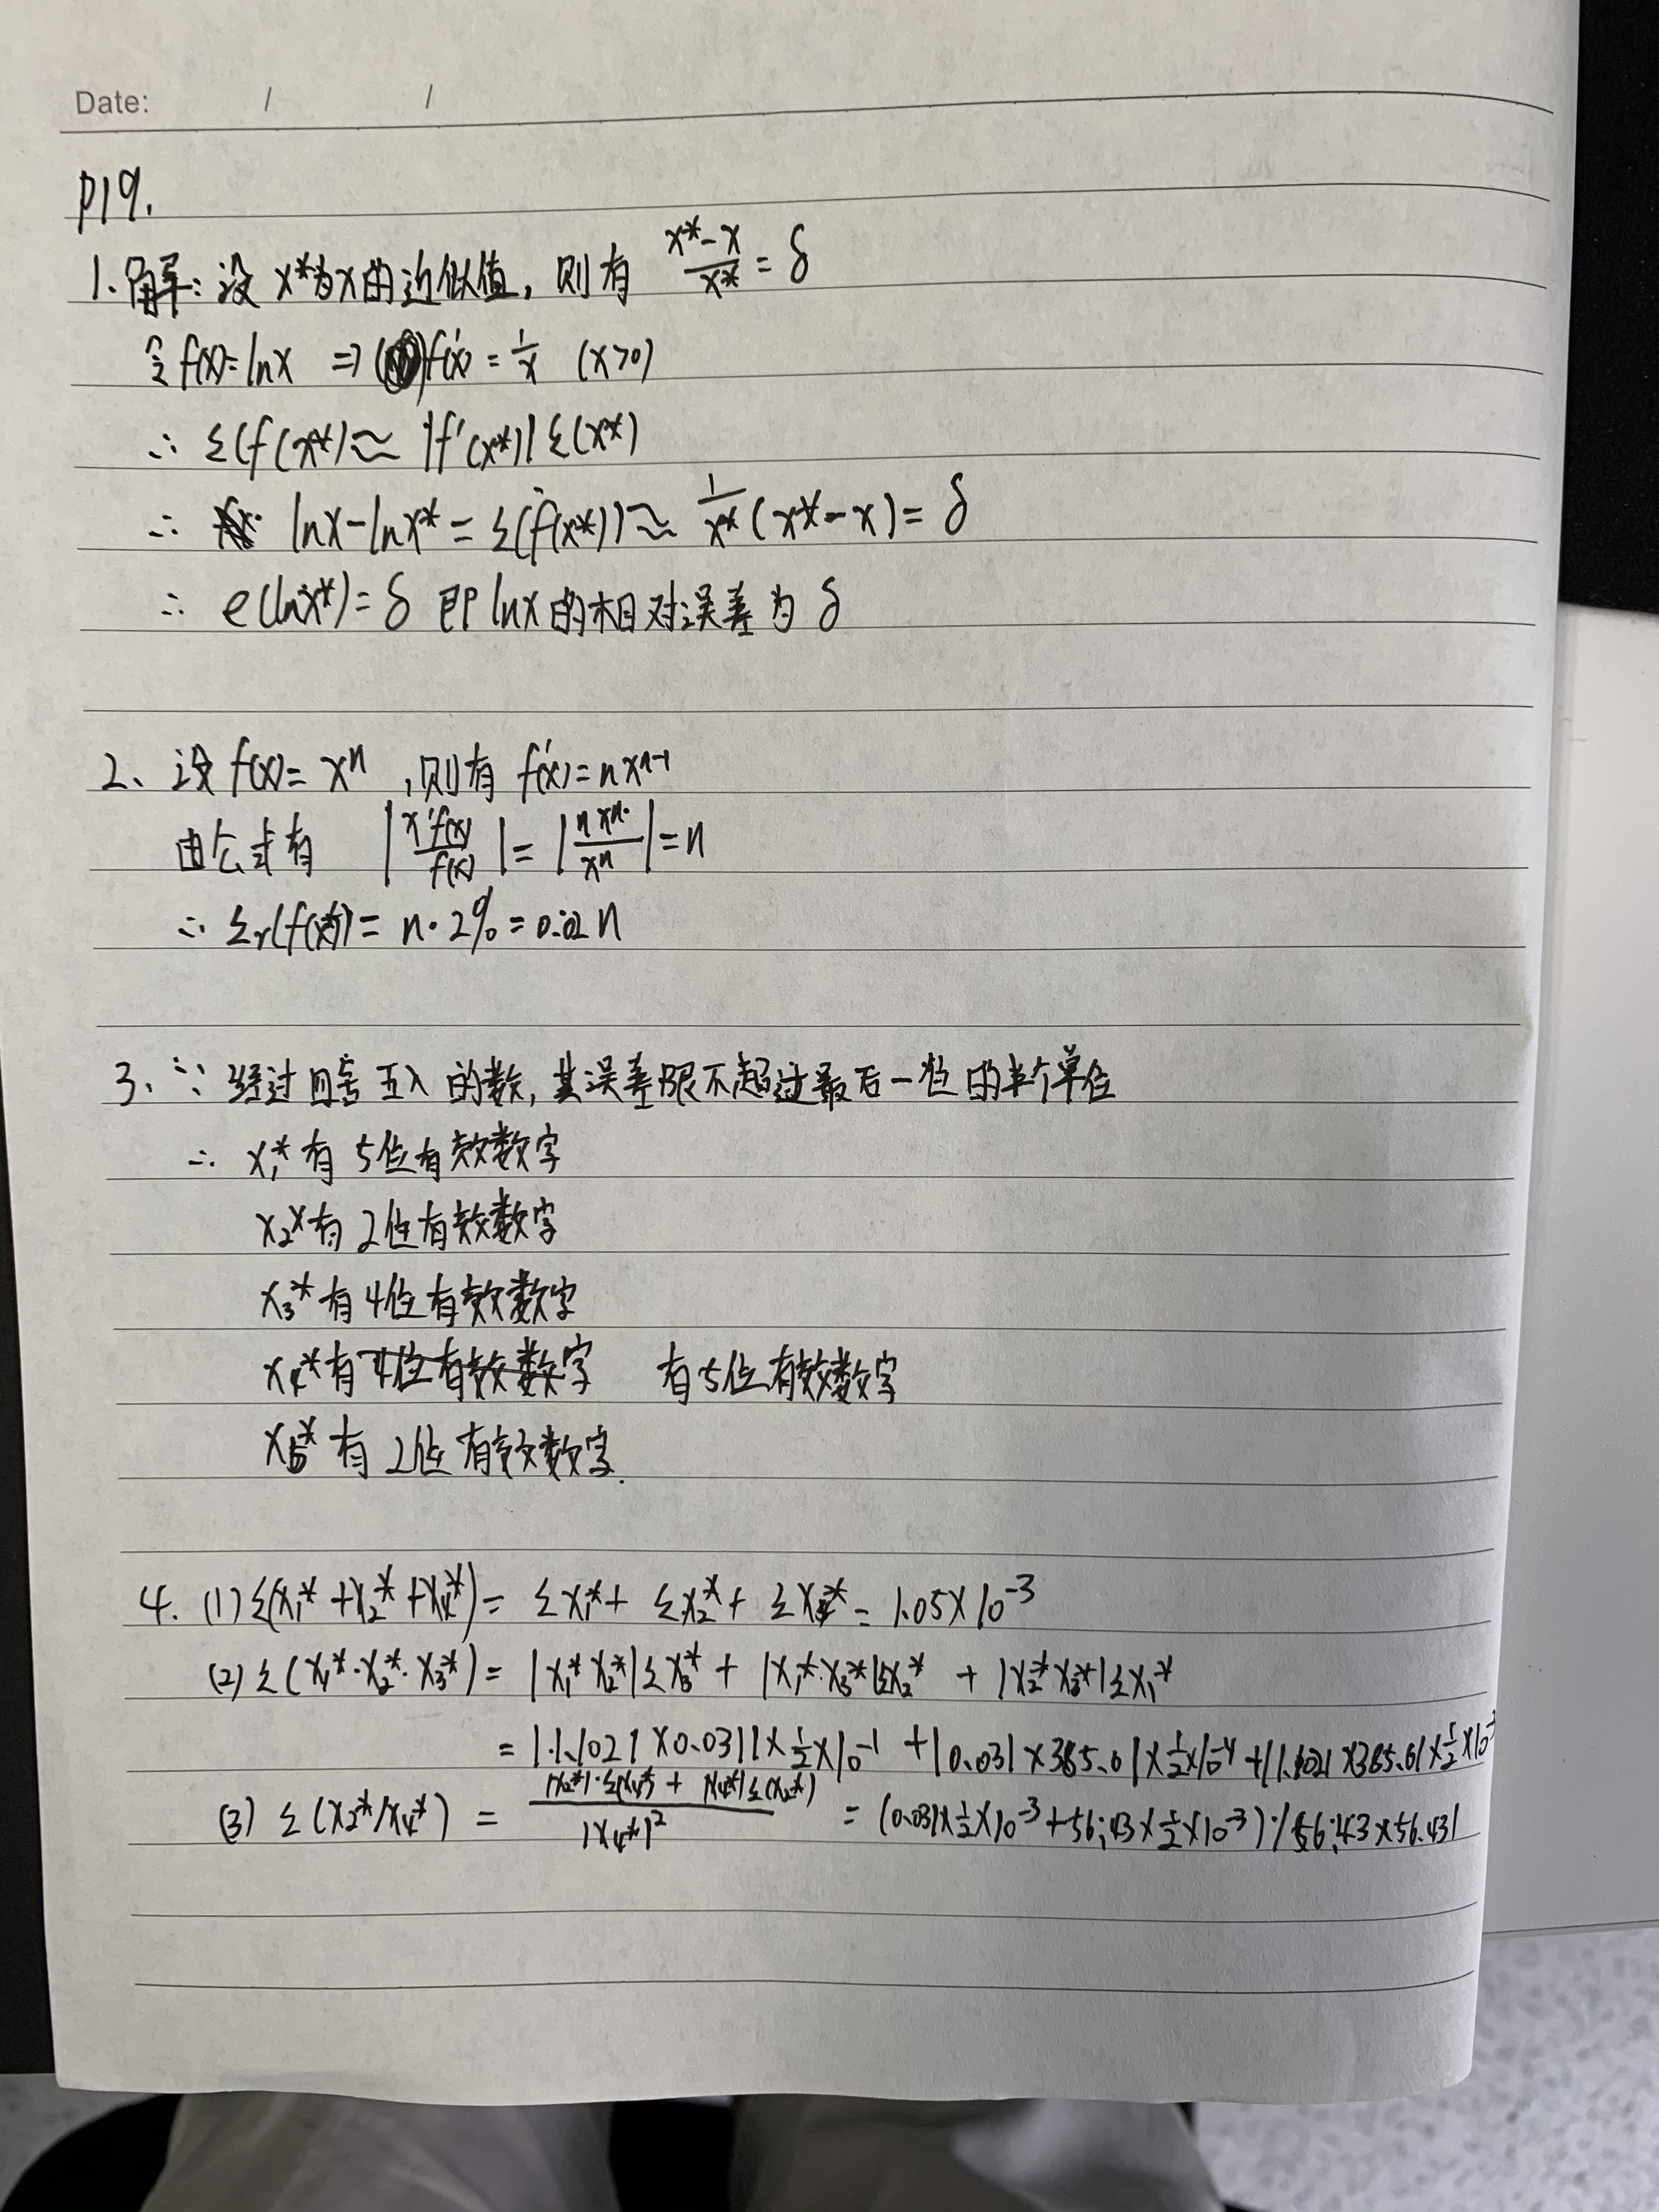 Date: / /
P19.
1. 解: 设 x*为x的近似值, 则有 (x*-x)/x* = δ
令 f(x)=lnx ⇒ f'(x) = 1/x (x>0)
∴ ε(f(x*)≈ |f'(x*)| ε(x*)
∴ lnx-lnx* = ε(f(x*)) ≈ 1/x* (x*-x) = δ
∴ e(lnx*) = δ 即 lnx 的相对误差为 δ
2、设 f(x)= xⁿ ,则有 f'(x)=nxⁿ⁻¹
由公式有 |x'f(x)/f(x)| = |nxⁿ·/xⁿ| = n
∴ εr(f(x*)) = n·2% = 0.02n
3. ∵ 经过四舍五入的数, 其误差限不超过最后一位的半个单位
∴ x₁* 有 5位有效数字
x₂* 有 2位有效数字
x₃* 有 4位有效数字
x₄* 有 4位有效数字 有5位有效数字
x₅* 有 2位有效数字.
4. (1) ε(x₁*+x₂*+x₄*) = εx₁*+ εx₂*+ εx₄* = 1.05×10⁻³
(2) ε(x₁*·x₂*·x₃*) = |x₁*x₂*|εx₃* + |x₁*·x₃*|εx₂* + |x₂*x₃*|εx₁*
= |1.1021×0.031|×1/2×10⁻¹ + |0.031×385.6|×1/2×10⁻⁴ + |1.1021×385.6|×1/2×10⁻³
(3) ε(x₂*/x₄*) = (|x₂*|·ε(x₄*) + |x₄*|ε(x₂*))/|x₄*|² = (0.031×1/2×10⁻³+56.43×1/2×10⁻³)/|56.43×56.43|